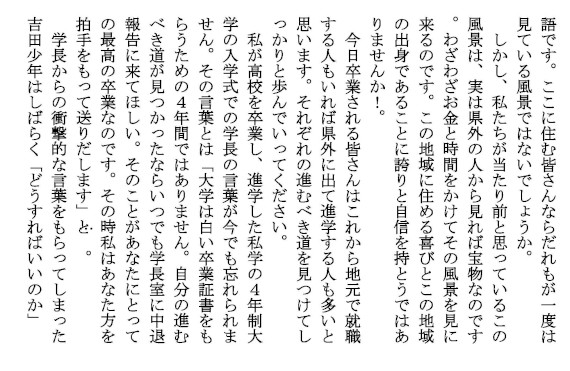 語です。ここに住む皆さんならだれもが一度は
見ている風景ではないでしょうか。
しかし、私たちが当たり前と思っているこの
風景は、実は県外の人から見れば宝物なのです
。わざわざお金と時間をかけてその風景を見に
来るのです。この地域に住める喜びとこの地域
の出身であることに誇りと自信を持とうではあ
りませんか！。
今日卒業される皆さんはこれから地元で就職
する人もいれば県外に出て進学する人も多いと
思います。それぞれの進むべき道を見つけてし
っかりと歩んでいってください。
私が高校を卒業し、進学した私学の４年制大
学の入学式での学長の言葉が今でも忘れられま
せん。その言葉とは「大学は白い卒業証書をも
らうための４年間ではありません。自分の進む
べき道が見つかったならいつでも学長室に中退
報告に来てほしい。そのことがあなたにとって
の最高の卒業なのです。その時私はあなた方を
拍手をもって送りだします」と…。
学長からの衝撃的な言葉をもらってしまった
吉田少年はしばらく「どうすればいいのか」